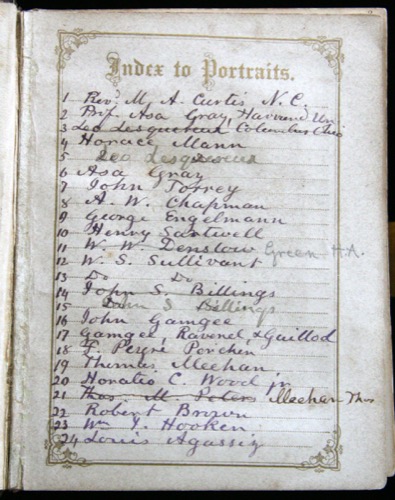 Index to Portraits.
1 Revd. M. A. Curtis N. C.
2 Prof Asa Gray, Harvard Uni
3 Leo Lesquereux, Columbus Ohio
4 Horace Mann
5 Leo Lesquereux
6 Asa Gray
7 John Torrey
8 A. W. Chapman
9 George Engelmann
10 Henry Sartwell
11 W. W. Denslow Green H.A.
12 W. S. Sullivant
13 Do Do
14 John S. Billings
15 John S Billings
16 John Gamgee
17 Gamgee, Ravenel, & Gaillod
18 F. Peyre Porcher
19 Thomas Meehan
20 Horatio C. Wood jr
21 Thos. M. Peters Meehan Thos
22 Robert Brown
23 Wm J. Hooker
24 Louis Agassiz